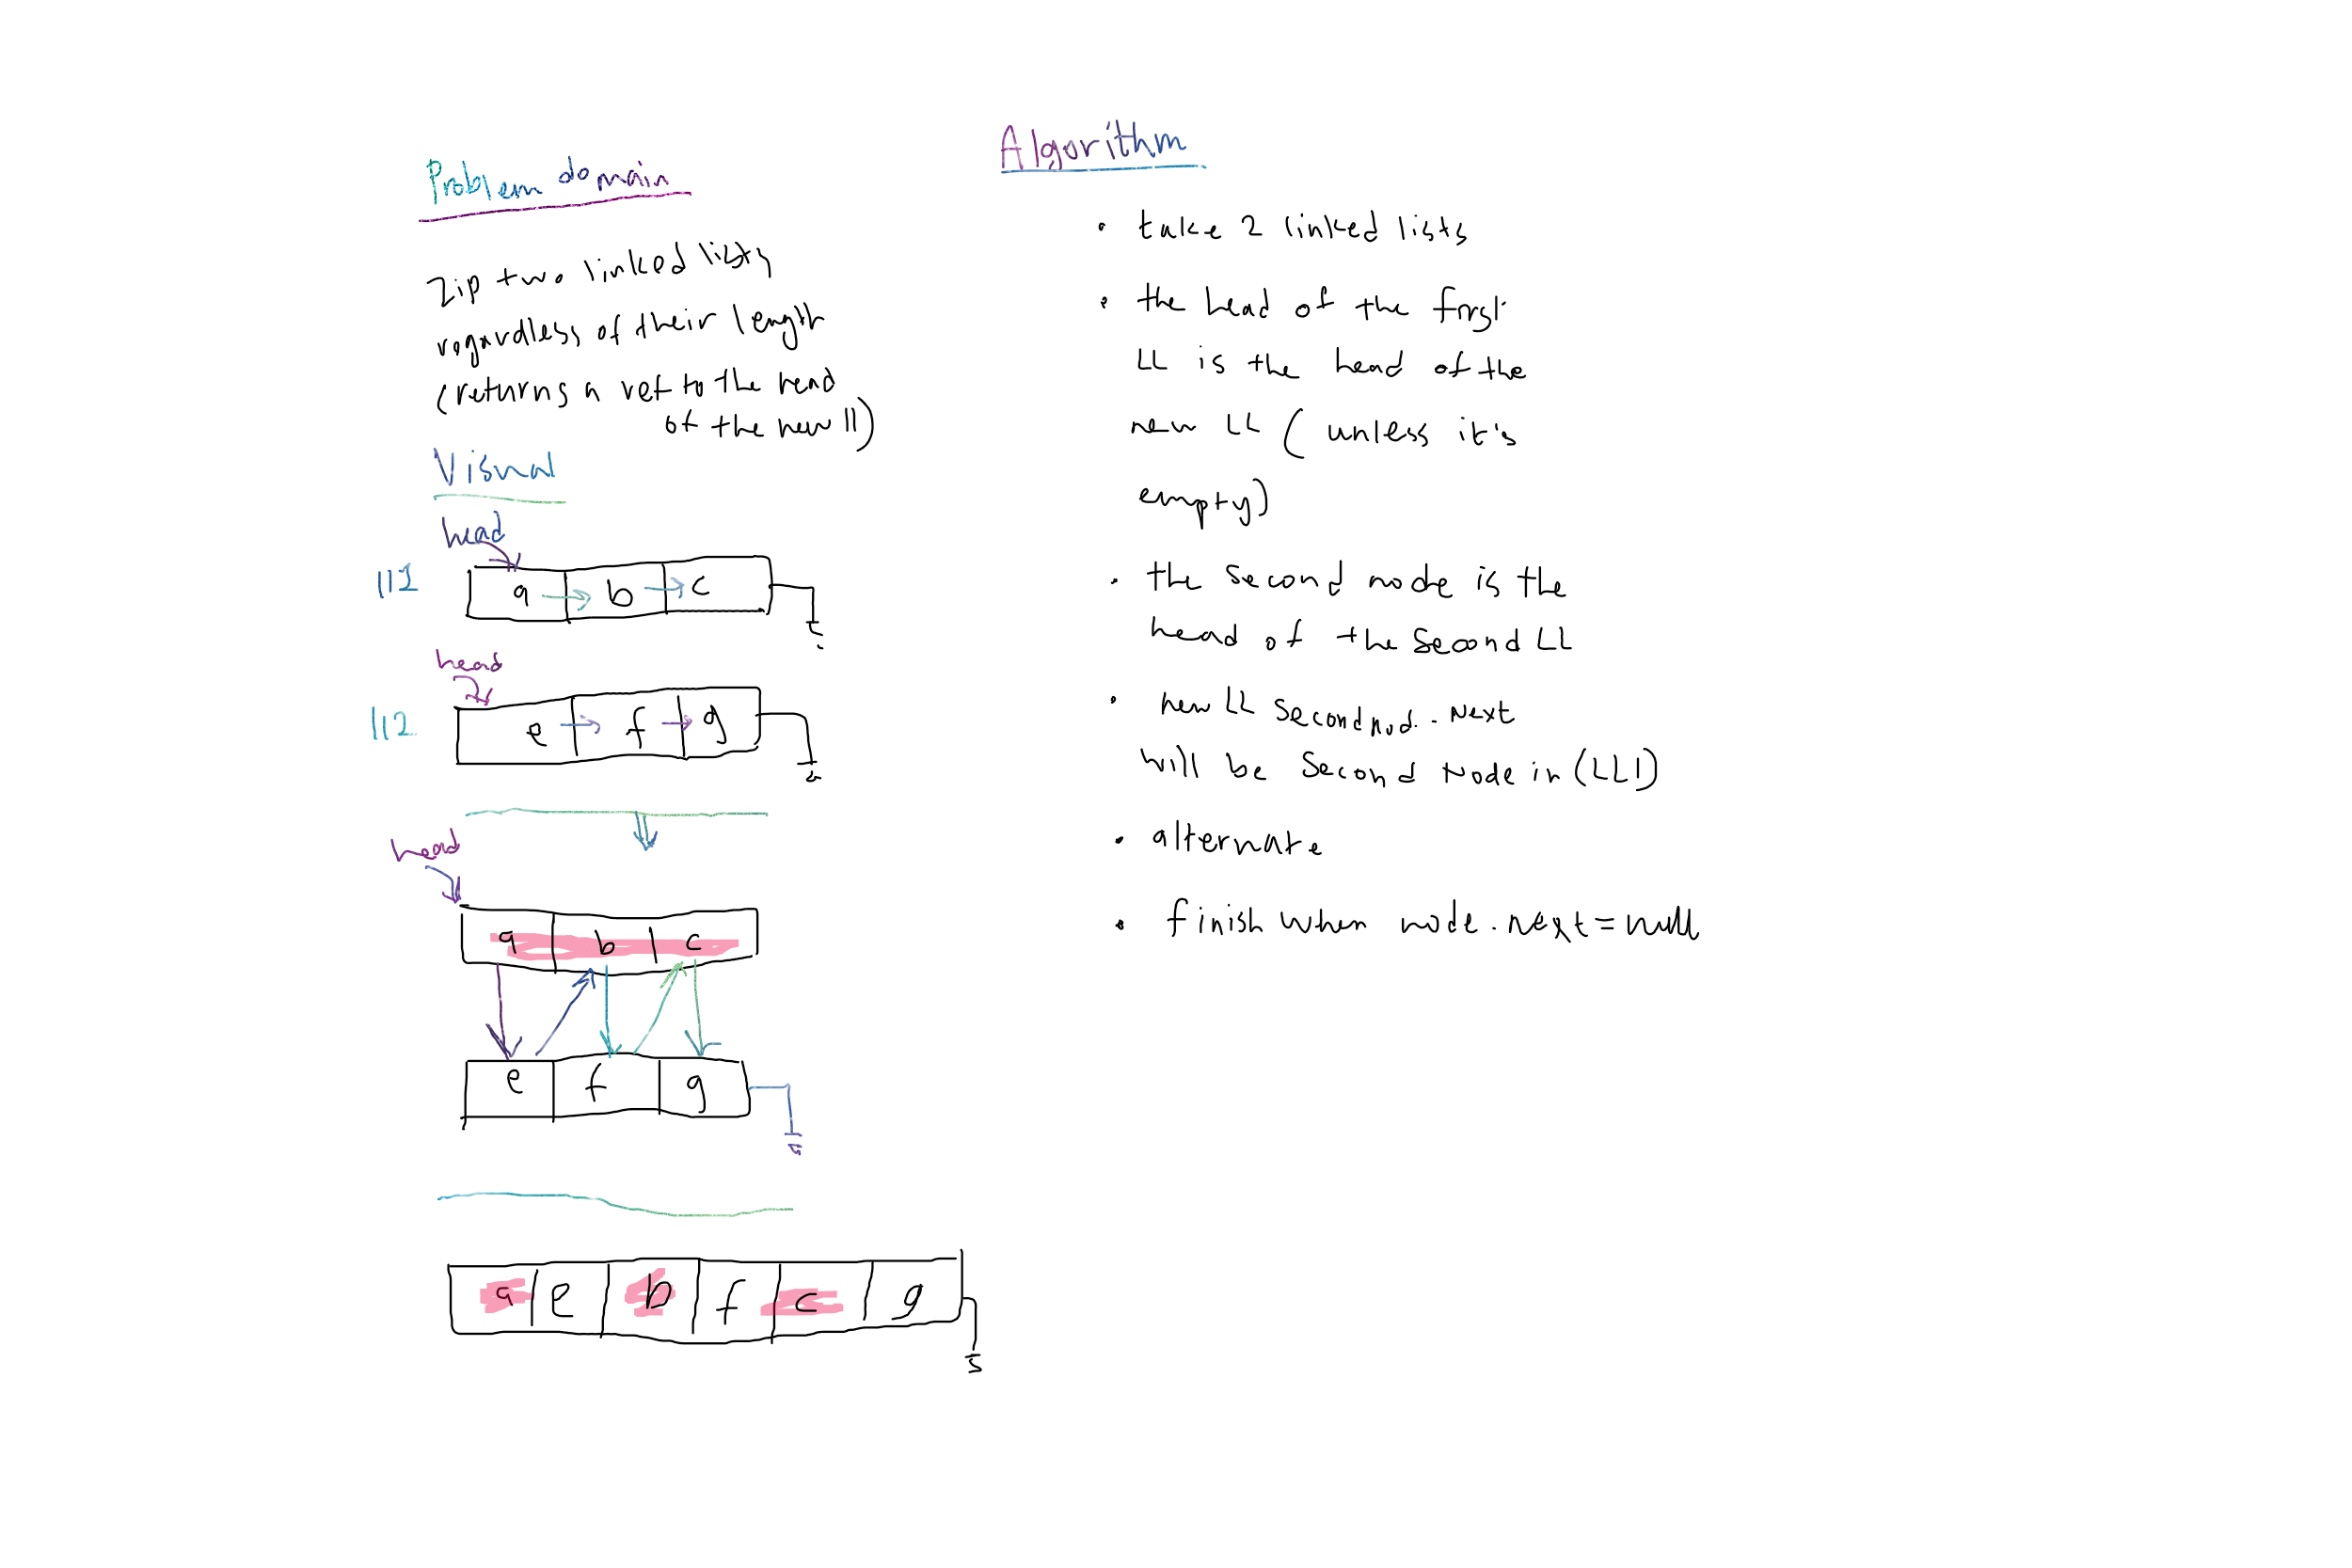 Problem domain
Zip two linked lists
regardless of their length
(returns a ref to the head
of the new ll)
Visual
head
ll1
a b c
head
ll2
e f g
head
a b c
e f g
a e b f c g
Algorithm
• take 2 linked lists
• the head of the first
LL is the head of the
new LL (unless it's
empty)
• the second node is the
head of the second LL
• new LL second nod.. Next
will be second Node in (LL1)
• alternate
• finish when node.next = null